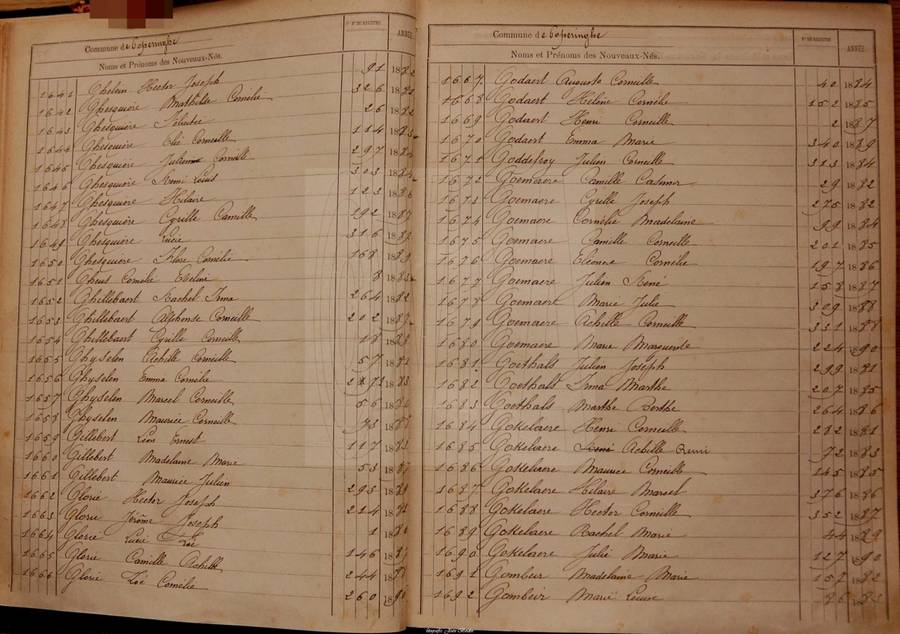 Commune de Poperinghe
Noms et Prénoms des Nouveaux-Nés.
ANNÉE
1641 Ghelein Hector Joseph 91 1882
1642 Ghesquière Mathilde Cornélie 326
1643 Ghesquière 26 1882
1644 Ghesquière Elie Corneille 114
1645 Ghesquière Julienne Cornélie 297
1646 Ghesquière Rémi Louis 303
1647 Ghesquière Hilaire 123
1648 Ghesquière Cyrille Camille 192 1887
1649 Ghesquière Lucie 316
1650 Ghesquière Flore Cornélie 168
1651 Gheus Cornélie Eveline 8
1652 Ghillebaert Rachel Irma 264 1882
1653 Ghillebaert Alphonse Corneille 202
1654 Ghillebaert Cyrille Corneille 18
1655 Ghyselen Achille Corneille 57
1656 Ghyselen Emma Cornélie
1657 Ghyselen Marcel Corneille 56
1658 Ghyselen Maurice Corneille 93
1659 Gillebert Léon Ernest 117
1660 Gillebert Madelaine Marie 53
1661 Gillebert Maurice Julien 293
1662 Glorie Hector Joseph 214
1663 Glorie Jérôme Joseph 1
1664 Glorie Lucie Zoé
1665 Glorie Camille Achille 146
1666 Glorie Zoé Cornélie 244
260
Commune de Poperinghe
Noms et Prénoms des Nouveaux-Nés.
Nº DU REGISTRE
ANNÉE
1667 Godaert Auguste Corneille 40 1884
1668 Godaert Helène Cornélie 152 1885
1669 Godaert Henri Corneille 2 1887
1670 Godaert Emma Marie 340 1889
1671 Goddefroy Julien Corneille 313 1884
1672 Goemaere Camille Casimir 29 1882
1673 Goemaere Cyrille Joseph 275 1882
1674 Goemaere Cornélie Madelaine 99 1884
1675 Goemaere Camille Corneille 201 1885
1676 Goemaere Etienne Cornélie 197 1886
1677 Goemaere Julien René 158 1887
1678 Goemaere Marie Julie 309 1888
1679 Goemaere Achille Corneille 331 1888
1680 Goemaere Marie Marguerite 224 1890
1681 Goethals Julien Joseph 299 1881
1682 Goethals Irma Marthe 207 1885
1683 Goethals Marthe Berthe 264 1886
1684 Gokelaere Henri Corneille 232 1881
1685 Gokelaere Achille Remi 92 1883
1686 Gokelaere Maurice Corneille 145 1885
1687 Gokelaere Hilaire Marcel 376 1886
1688 Gokelaere Hector Corneille 352 1887
1689 Gokelaere Rachel Marie 44 1889
1690 Gokelaere Julie Marie 127 1890
1691 Gombeir Madelaine Marie 157 1882
1692 Gombeir Marie Louise